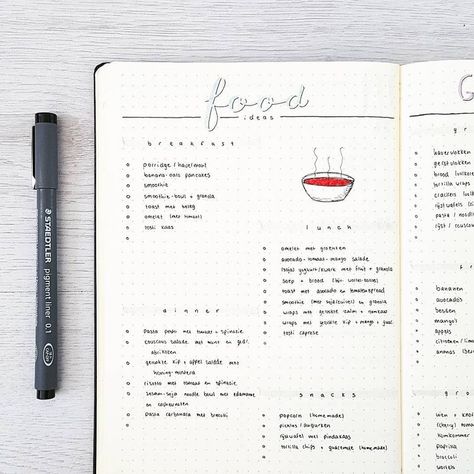 food
ideas
breakfast
porridge / havermout
banana-oats pancakes
smoothie
smoothie-bowl + granola
toast met beleg
omelet (met tomaat)
tosti kaas
lunch
omelet met groenten
avocado-tomaat-mango salade
(soja) yoghurt/kwark met fruit + granola
soep + brood
toast met avocado en tomatenspread
smoothie (met soja(cuisine) en granola
wraps met gerookte zalm + roomkaas
wraps met gerookte kip + mango + guac
tosti caprese
dinner
pasta pesto met tomaat + spinazie
couscous salade met munt en
abrikozen
gerookte kip + appel salade met
honing-mosterd
risotto met tomaat en spinazie
sesam-soja noodle bowl met edamame
en cashewnoten
pasta carbonara met broccoli
snacks
popcorn (homemade)
pinda's / augurken
rijstwafel met pindakaas
tortilla chips + guacamole (homemade)
STAEDTLER
pigment liner 0.1
G
gr
havervlokken
gerstvlokken
brood
tortilla wraps
crackers
rijstwafels
pasta / noodl
rijst / cousc
f
bananen
avocado
bessen
mango
appels
citroenen / lim
ananas
gro
komkommer
paprika
broccoli
wortels